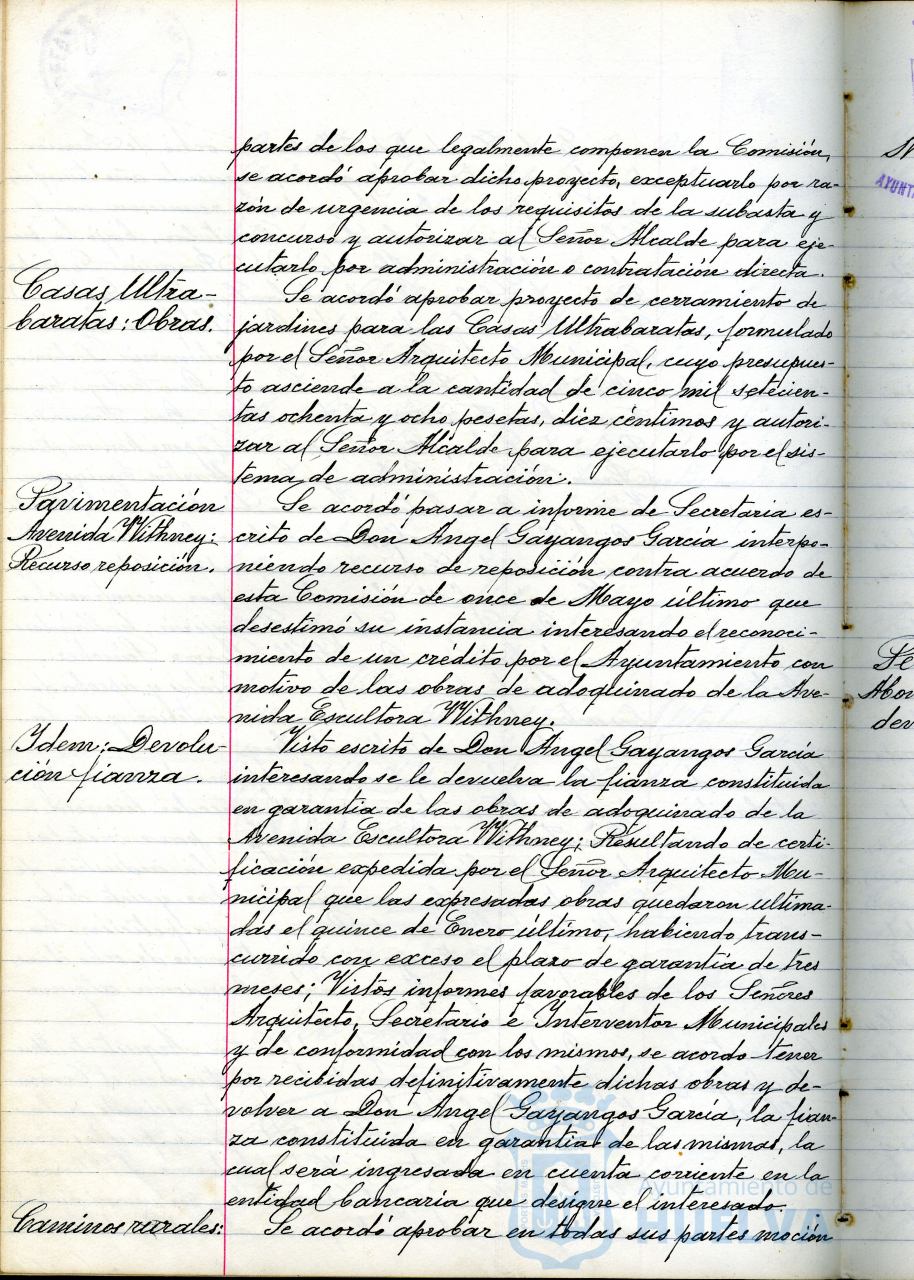 partes de los que legalmente componen la Comisión,
se acordó aprobar dicho proyecto, exceptuarlo por ra-
zón de urgencia de los requisitos de la subasta y
concurso y autorizar al Señor Alcalde para eje-
cutarlo por administración o contratación directa.
Casas Ultra-
baratas: Obras.
Se acordó aprobar proyecto de cerramiento de
jardines para las Casas Ultrabaratas, formulado
por el Señor Arquitecto Municipal, cuyo presupues-
to asciende a la cantidad de cinco mil setecien-
tas ochenta y ocho pesetas, diez céntimos y autori-
zar al Señor Alcalde para ejecutarlo por el sis-
tema de administración.
Pavimentación
Avenida Withney:
Recurso reposición.
Se acordó pasar a informe de Secretaria es-
crito de Don Angel Gayangos García interpo-
niendo recurso de reposición contra acuerdo de
esta Comisión de once de Mayo último que
desestimó su instancia interesando el reconoci-
miento de un crédito por el Ayuntamiento con
motivo de las obras de adoquinado de la Ave-
nida Escultora Withney.
Idem: Devolu-
ción fianza.
Visto escrito de Don Angel Gayangos García
interesando se le devuelva la fianza constituida
en garantia de las obras de adoquinado de la
Avenida Escultora Withney; Resultando de certi-
ficación expedida por el Señor Arquitecto Mu-
nicipal que las expresadas obras quedaron ultima-
das el quince de Enero último, habiendo trans-
currido con exceso el plazo de garantía de tres
meses; Vistos informes favorables de los Señores
Arquitecto, Secretario e Interventor Municipales
y de conformidad con los mismos, se acordo tener
por recibidas definitivamente dichas obras y de-
volver a Don Angel Gayangos García, la fian-
za constituida en garantia de las mismas, la
cual será ingresada en cuenta corriente en la
entidad bancaria que designe el interesado.
Caminos rurales:
Se acordó aprobar en todas sus partes moción
Ayuntamiento de
HUELVA